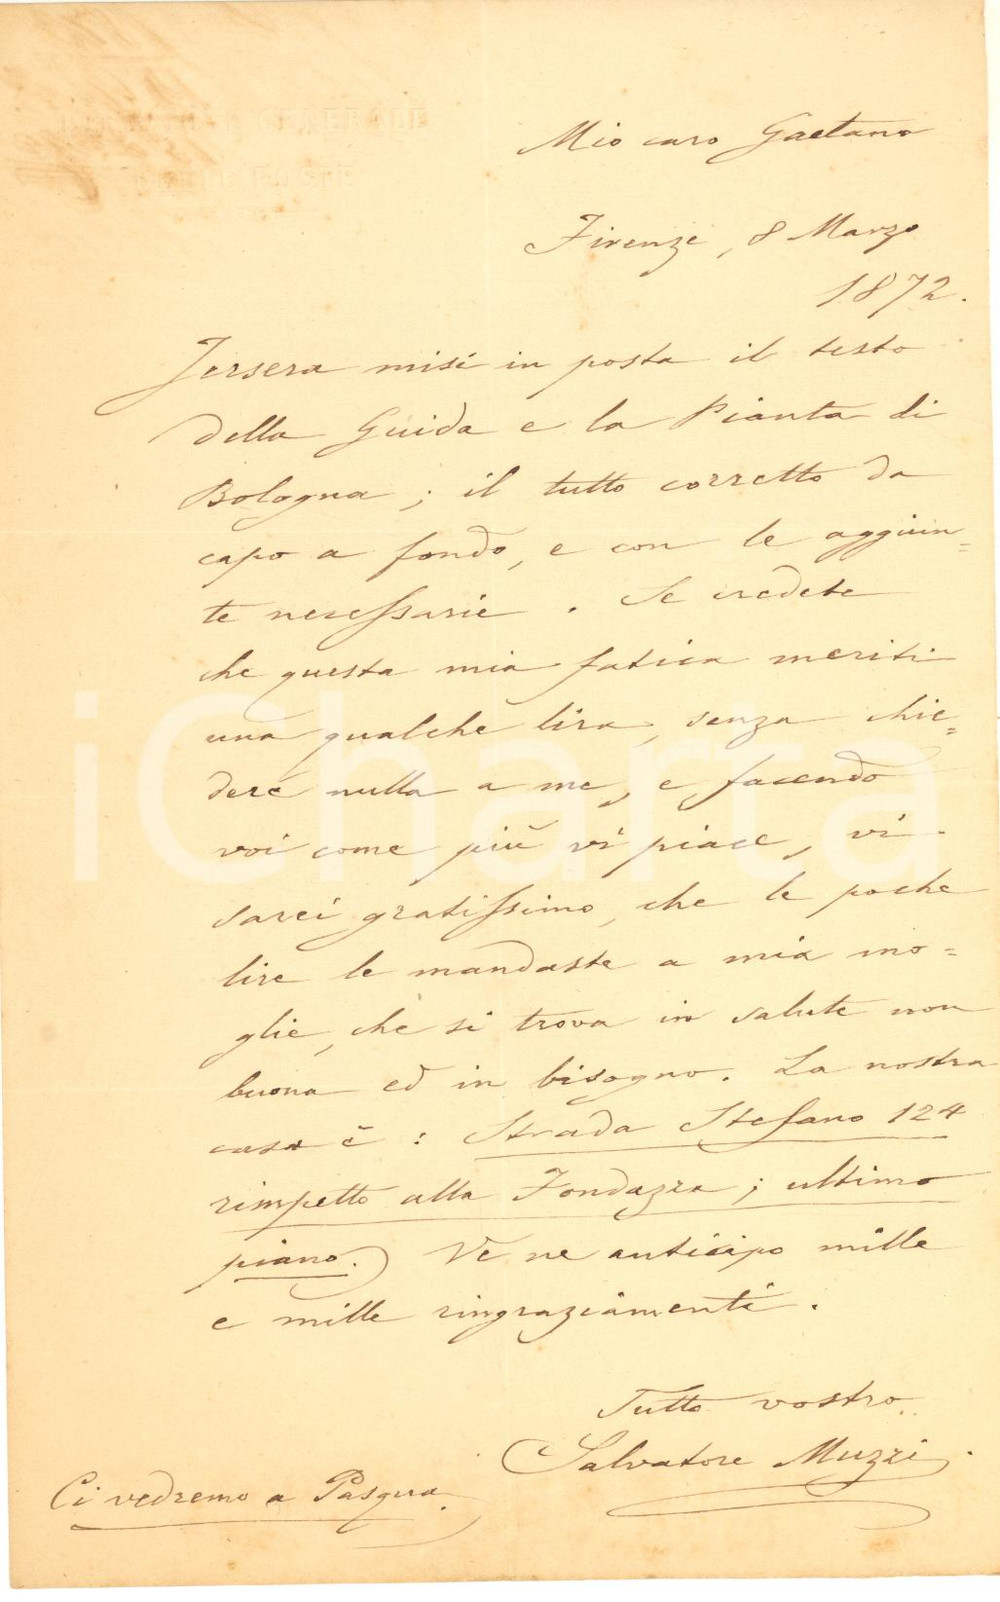 DIREZIONE GENERALE
DELLE POSTE
Mio caro Gaetano
Firenze, 8 Marzo
1872.
Jersera misi in posta il testo
della Guida e la Pianta di
Bologna; il tutto corretto da
capo a fondo, e con le aggiun=
te necessarie. Se credete
che questa mia fatica meriti
una qualche lira, senza chie=
dere nulla a me, e facendo
voi come più vi piace, vi
sarei gratissimo, che le poche
lire le mandaste a mia mo=
glie, che si trova in salute non
buona ed in bisogno. La nostra
casa è: Strada Stefano 124
rimpetto alla Fondazza; ultimo
piano.) Ve ne anticipo mille
e mille ringraziamenti.
Tutto vostro
Salvatore Muzzi.
Ci vedremo a Pasqua.
iCharta